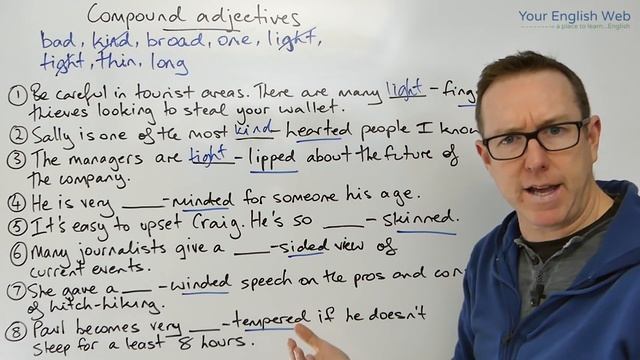 Compound adjectives
Your English Web
a place to learn...English
bad, kind, broad, one, light,
tight, thin, long
① Be careful in tourist areas. There are many light - fing
thieves looking to steal your wallet.
② Sally is one of the most kind - hearted people I know
③ The managers are tight - lipped about the future of
the company.
④ He is very ____-minded for someone his age.
⑤ It's easy to upset Craig. He's so ____ - skinned.
⑥ Many journalists give a ____-sided view of
current events.
⑦ She gave a ____-winded speech on the pros and con
of hitch-hiking.
⑧ Paul becomes very ____-tempered if he doesn't
sleep for a least 8 hours.